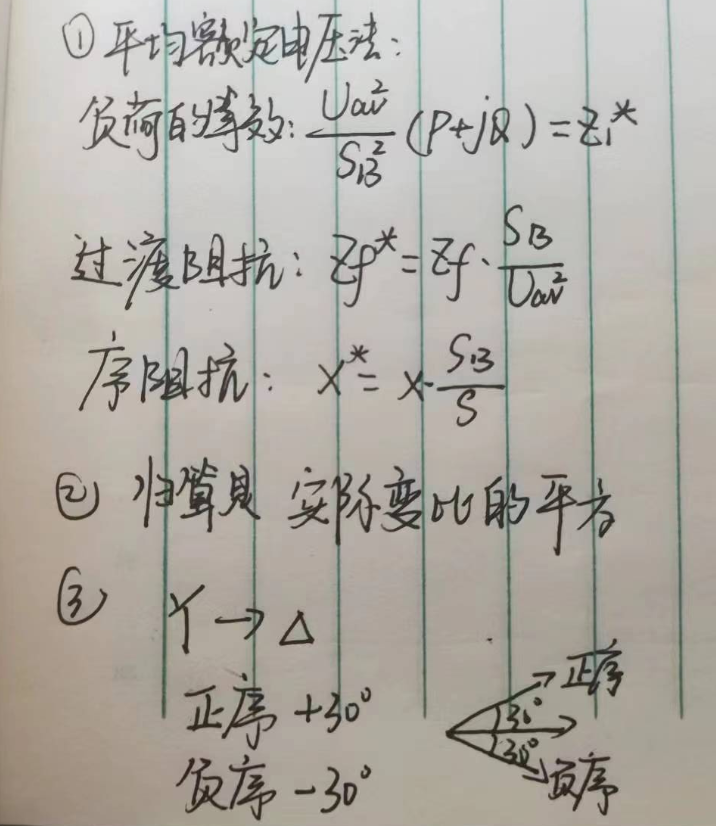 ① 平均额定电压法:
负荷的等效: Uav²/SB² (P+jQ) = Z1*
过渡阻抗: Zf* = Zf · SB/Uav²
序阻抗: X* = X · SB/S
② 归算是 实际变比的平方
③ Y → △
正序 +30°
负序 -30°
正序
30°
30°
负序